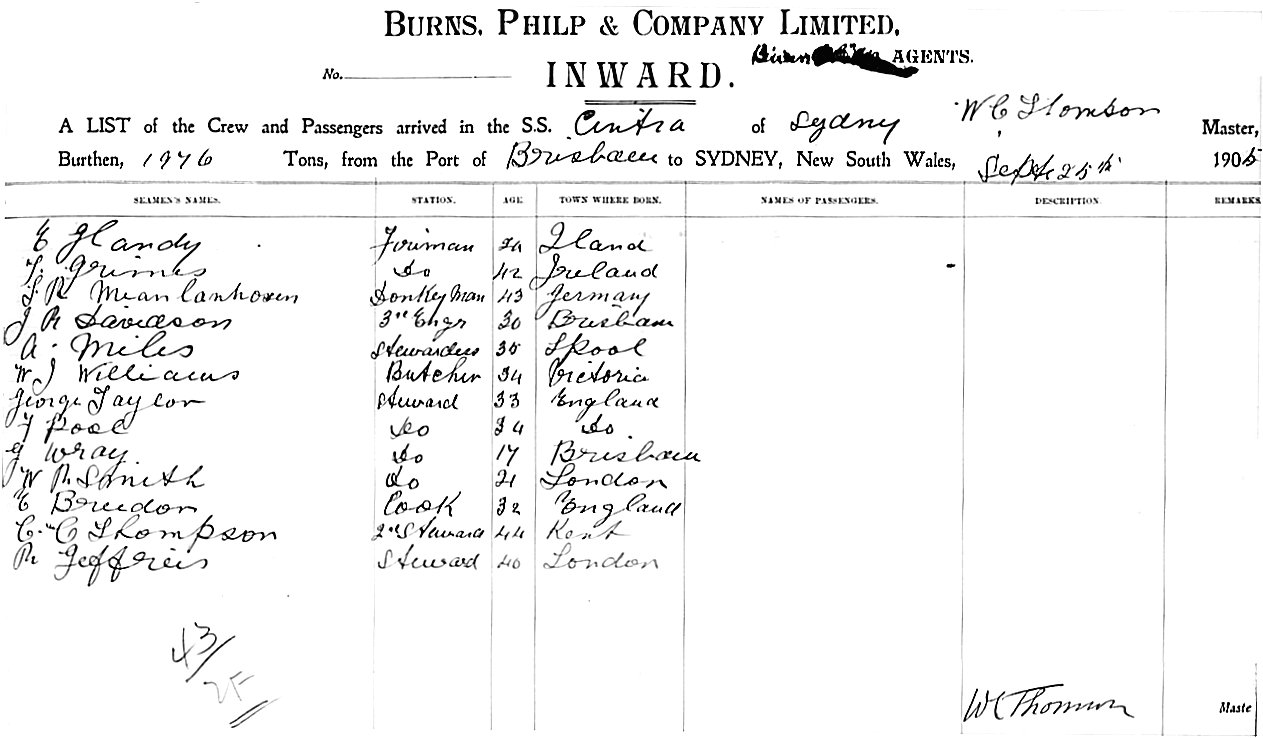 BURNS, PHILP & COMPANY LIMITED,
AGENTS.
No.
INWARD.
A LIST of the Crew and Passengers arrived in the S.S. Cintra of Sydney W C Thomson Master,
Burthen, 1976 Tons, from the Port of Brisbane to SYDNEY, New South Wales, Sept 25th 1905
SEAMEN'S NAMES. STATION. AGE TOWN WHERE BORN. NAMES OF PASSENGERS. DESCRIPTION. REMARKS
E Handy Fireman
T. Grimes Do 42 Ireland
Donkey Man 43 Germany
J R Davidson 3rd Engr 30 Brisbane
A. Miles Stewardess 35 L'pool
W J Williams Butcher 34 Victoria
George Taylor Steward 33 England
F Pool Do 34 Do
G Wray Do 17 Brisbane
W R Smith Do 21 London
E Breedon Cook 32 England
C. C Thompson 2nd Steward 44 Kent
R Jeffreis Steward 40 London
43/
25
W C Thomson Maste